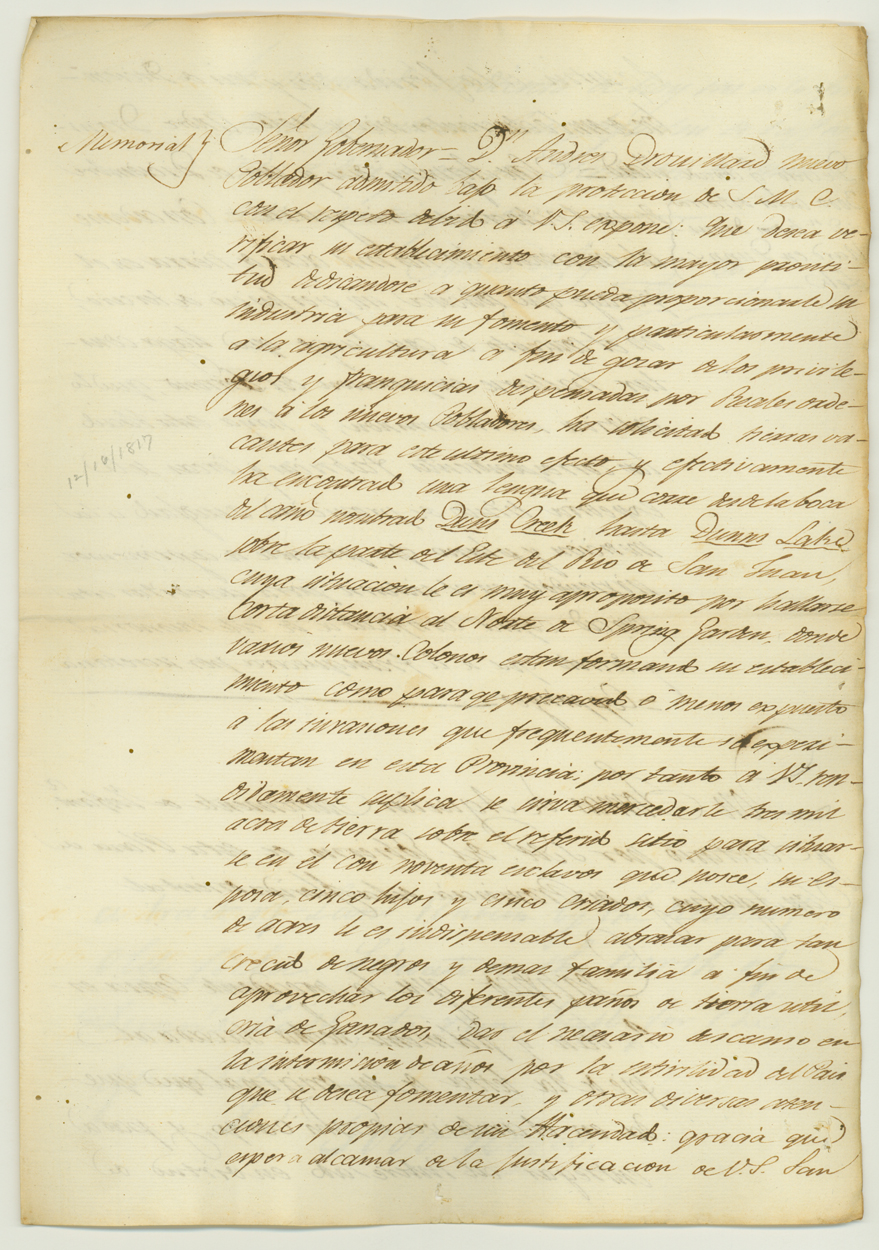 Memorial } Señor Gobernador = Dn Andres Drouillard nuevo
Poblador admitido bajo la proteccion de S. M. C.
con el respeto debid á V.S. expone: Que desea ve-
rificar su establecimiento con la mayor pronti-
tud dedicandose a quanto pueda proporcionarle su
industria para su fomento y particularmente
a la agricultura a fin de gozar de los privile-
gios y franquicias dispensadas por Reales orde-
nes á los nuevos Pobladores, ha solicitad tierras va-
cantes para este ultimo efecto, y efectivamente
ha encontrad una lengua que corre desde la boca
del caño nombrad Duns Creek hasta Dunns Lake
sobre la parte del Este del Rio de San Juan,
cuya situacion le es muy aproposito por hallarse
corta distancia al Norte de Spring Garden, donde
varios nuevos Colonos estan formand su estableci-
miento como parage precavid ó menos expuesto
á las invasiones que frequentemente se experi-
mentan en esta Provincia: por tanto á V.S. ren-
didamente suplica se sirva mercedarle tres mil
acres de tierra sobre el referid sitio para situar-
se en él con noventa esclavos que posee, su es-
posa, cinco hijos y cinco criados, cuyo numero
de acres le es indispensable abrazar para tan
crecid de negros y demas familia a fin de
aprovechar los diferentes paños de tierra util,
cria de Ganados, dar el necesario descanso en
la intermision de años por la esterilidad del Pais
que se desea fomentar, y otras diversas aten-
ciones propias de un Hacendad: gracia que
espera alcanzar de la Justificacion de V.S. San
12/16/1817